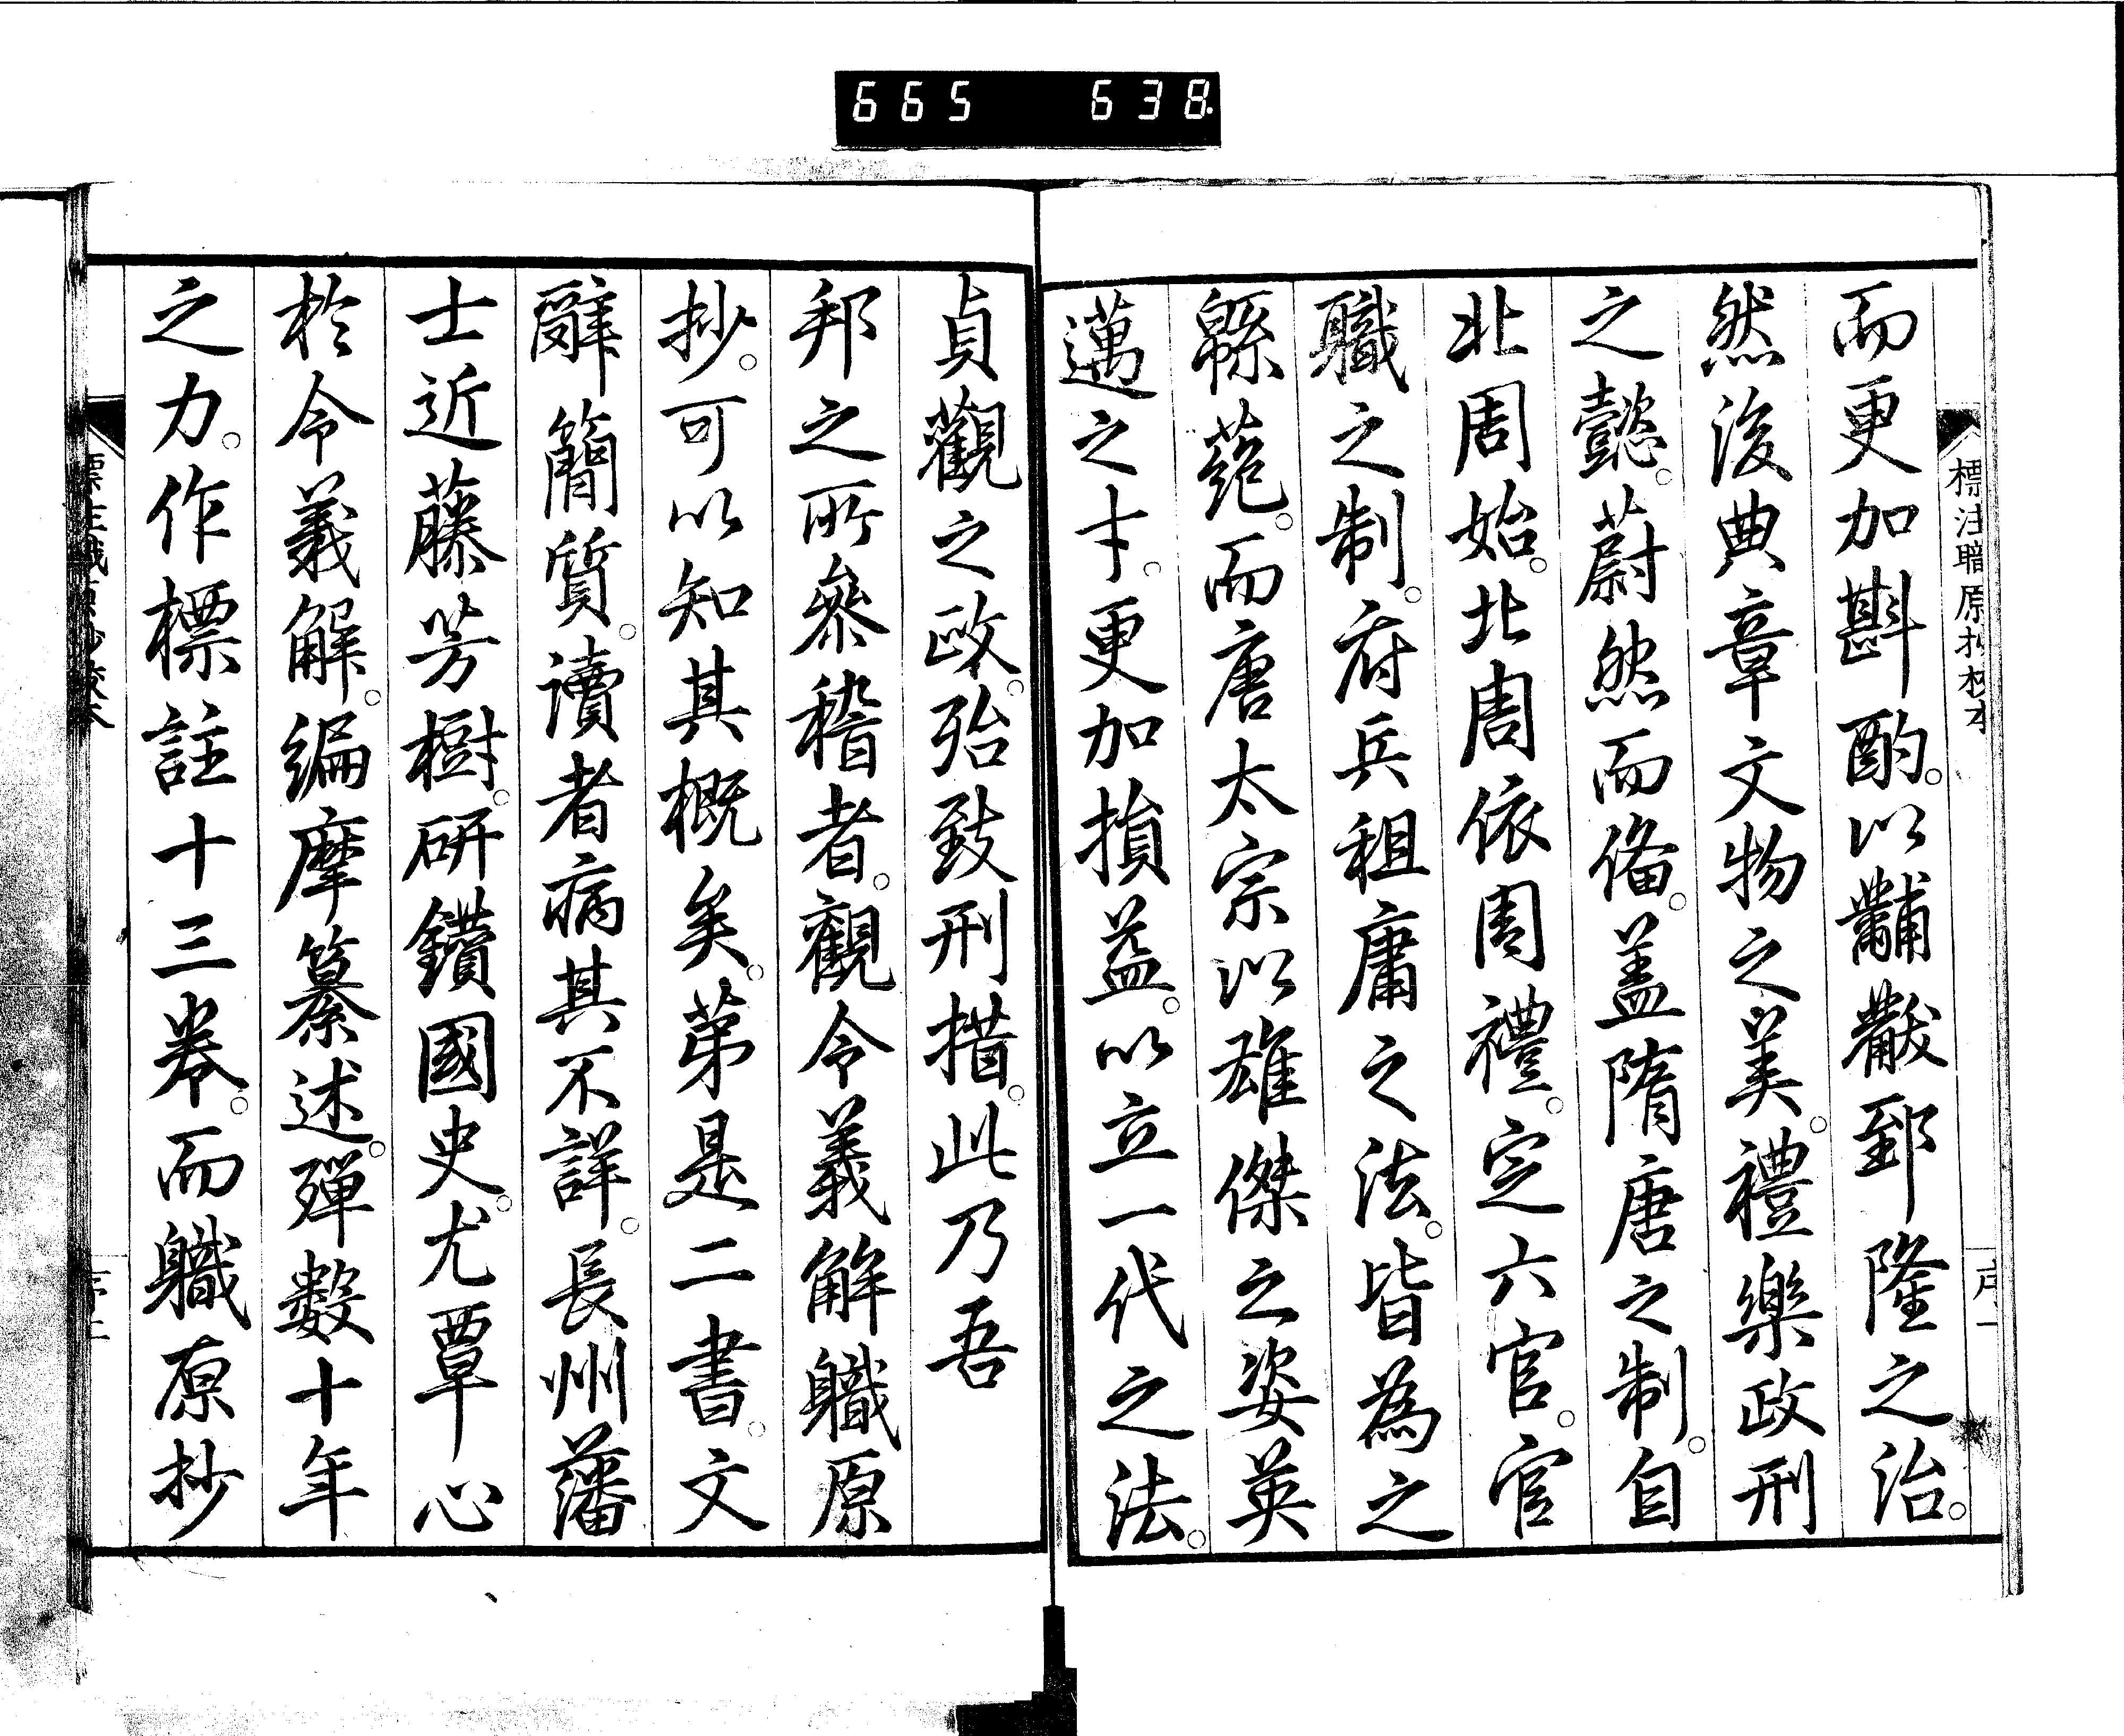 665 638.
標注職原抄校本
序一
而更加斟酌。以黼黻郅隆之治。
然後典章文物之美。禮樂政刑
之懿。蔚然而備。蓋隋唐之制。自
北周始。北周依周禮。定六官。官
職之制。府兵租庸之法。皆為之
緜蕝。而唐太宗以雄傑之姿英
邁之才。更加損益。以立一代之法。
貞觀之政。殆致刑措。此乃吾
邦之所參稽者。觀令義解職原
抄。可以知其概矣。第是二書。文
辭簡質。讀者病其不詳。長州藩
士近藤芳樹。研鑽國史。尤覃心
於令義解。編摩纂述。殫數十年
之力。作標註十三卷。而職原抄